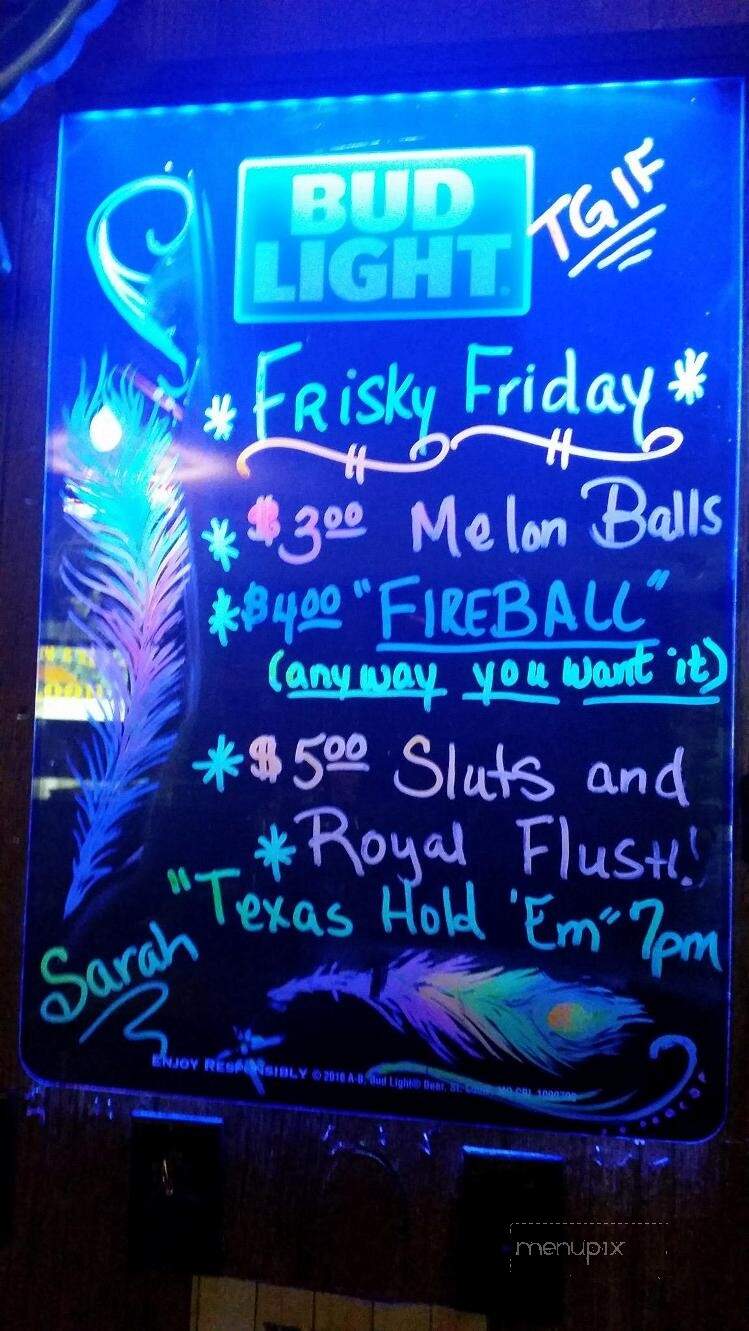 BUD
LIGHT
TGIF
* FRisky Friday *
* $3.00 Melon Balls
* $4.00 "FIREBALL"
(anyway you want it)
* $5.00 Sluts and
* Royal Flush!
"Texas Hold 'Em" 7pm
Sarah
ENJOY RESPONSIBLY © 2016 A-B, Bud Light® Beer, St. Louis, MO
menupix